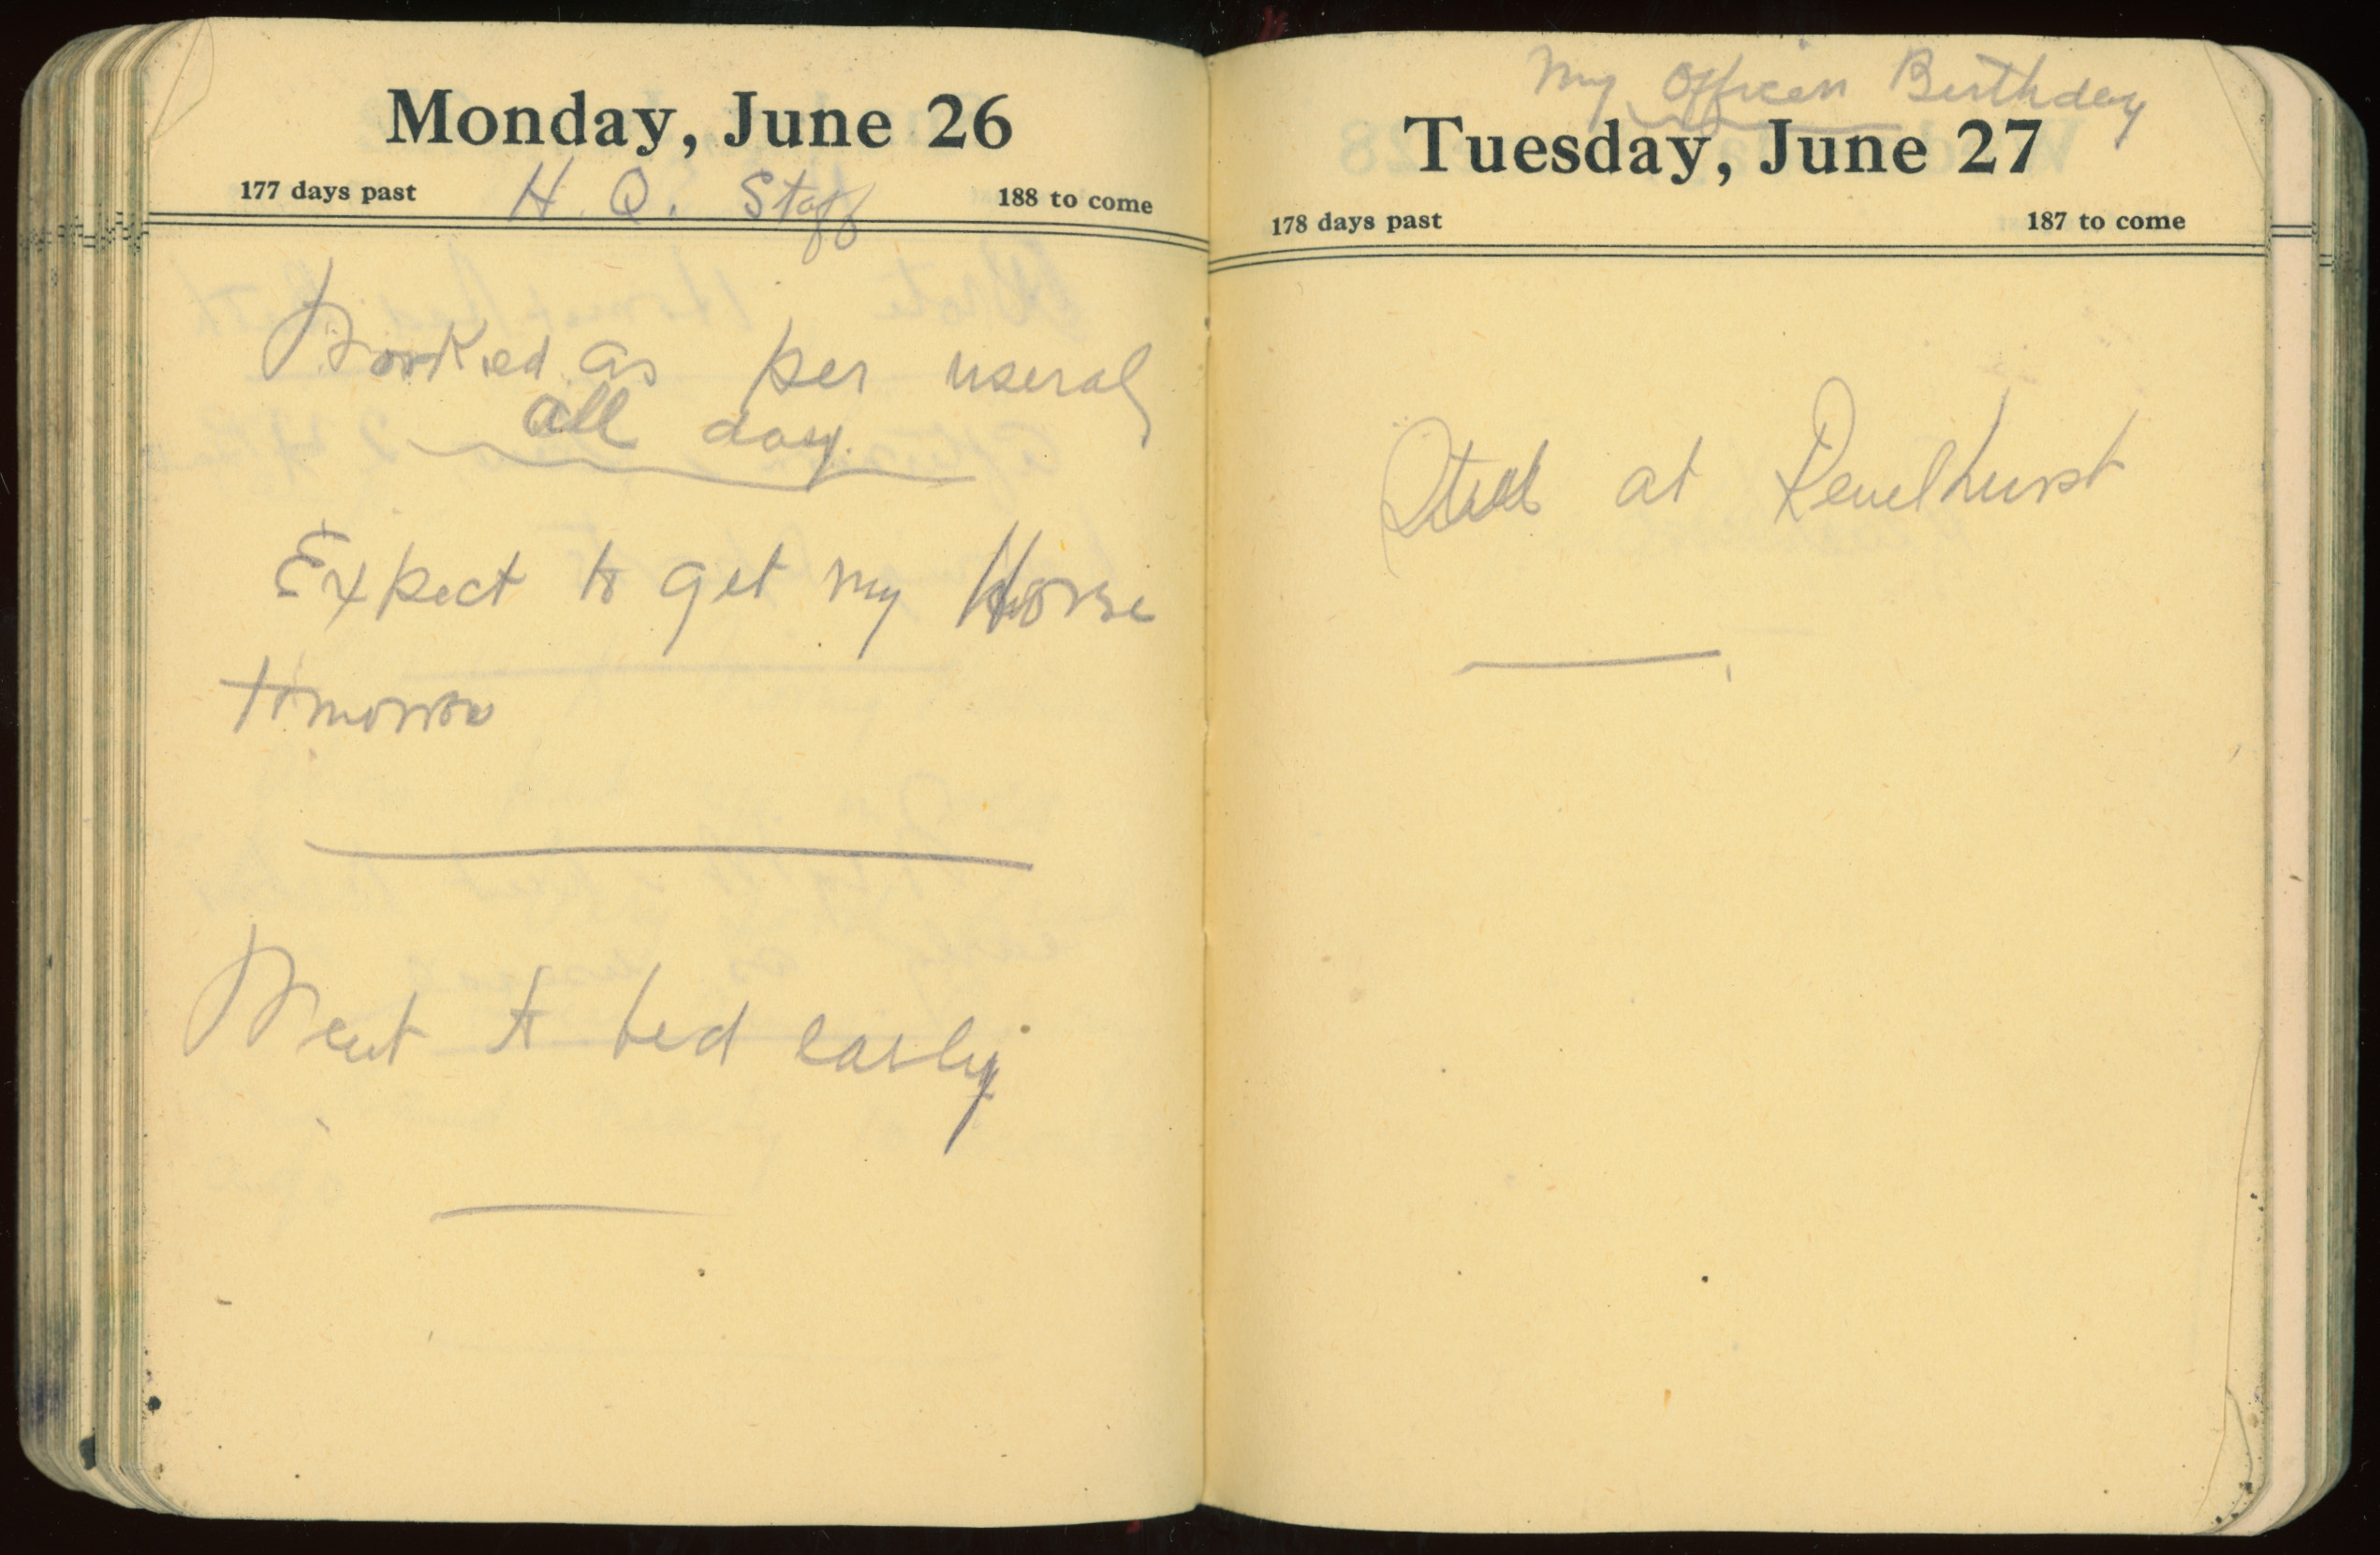 Monday, June 26
177 days past H. Q. Staff 188 to come
Worked as per useral
all day.
Expect to get my Horse
tomorrow
Went to bed early
My Officers Birthday
Tuesday, June 27
178 days past 187 to come
Still at